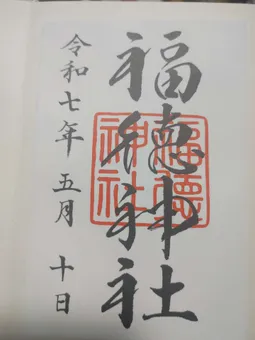 福徳神社
福徳神社
令和七年五月十日